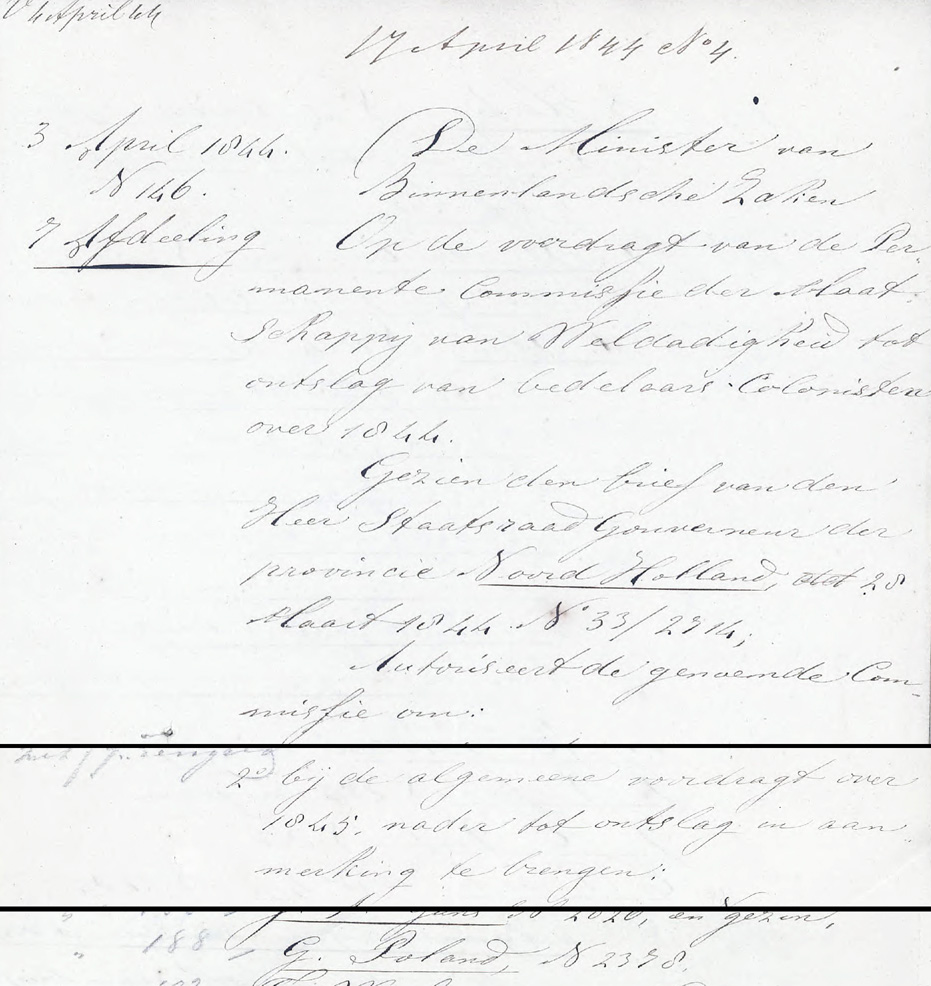 April 44
17 April 1844 No 4.
3 April 1844.
N 146.
7 Afdeeling
De Minister van
Binnenlandsche Zaken
Op de voordragt van de Per-
manente Commissie der Maat-
schappij van Weldadigheid tot
ontslag van bedelaars-Colonisten
over 1844.
Gezien den brief van den
Heer Staatsraad Gouverneur der
provincie Noord Holland, dd 28
Maart 1844 No 33/2914;
Autoriseert de genoemde Com-
missie om:
2o bij de algemeene voordragt over
1845, nader tot ontslag in aan-
merking te brengen:
No 2020, en gezin,
188
G. Poland, N 2378.